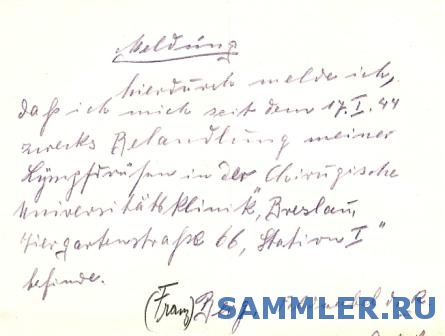 Meldung
Hierdurch melde ich,
daß ich mich seit dem 17.I.44
zwecks Behandlung meiner
Lympfdrüsen in der Chirurgische
Universitätsklinik, Breslau,
Tiergartenstraße 66, Station I"
befinde.
(Franz)
SAMMLER.RU